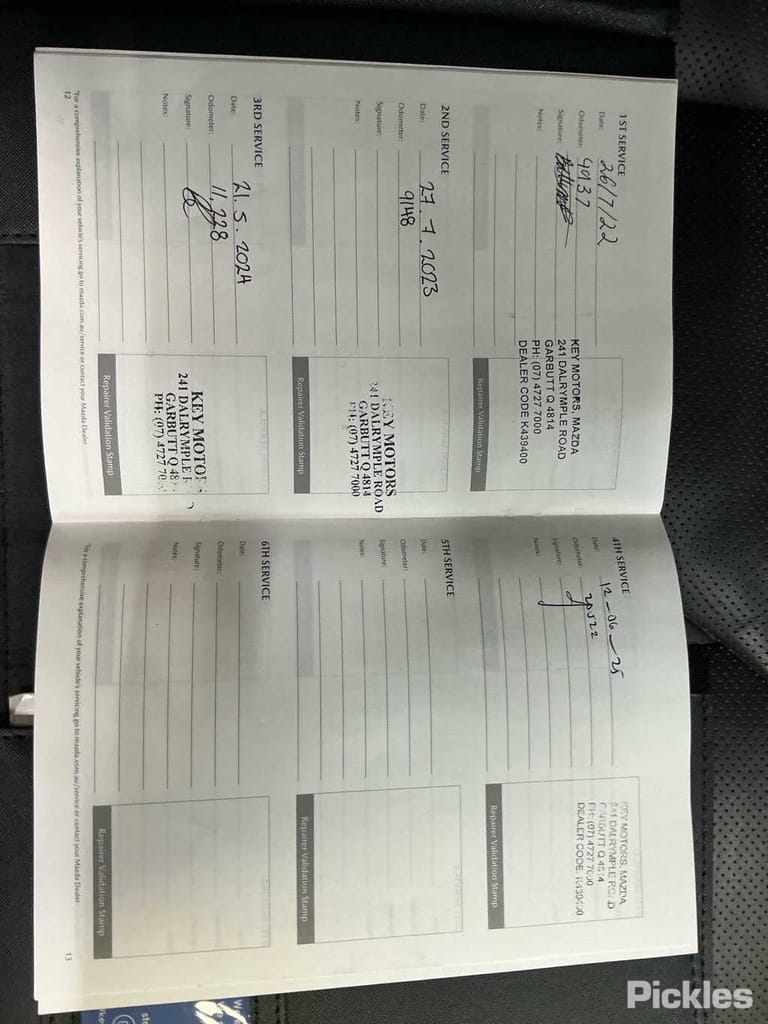 1ST SERVICE
Date: 26/7/22
Odometer: 4937
Signature:
Notes:
KEY MOTORS, MAZDA
241 DALRYMPLE ROAD
GARBUTT Q 4814
PH: (07) 4727 7000
DEALER CODE K439400
Repairer Validation Stamp
2ND SERVICE
Date: 27.7.2023
Odometer: 9148
Signature:
Notes:
KEY MOTORS
241 DALRYMPLE ROAD
GARBUTT Q 4814
PH: (07) 4727 7000
Repairer Validation Stamp
3RD SERVICE
Date: 21.5.2024
Odometer: 11,228
Signature:
Notes:
KEY MOTO
241 DALRYMPLE
GARBUTT Q 48
PH: (07) 4727 70
Repairer Validation Stamp
*For a comprehensive explanation of your vehicle's servicing go to mazda.com.au/service or contact your Mazda Dealer
12
4TH SERVICE
Date: 12-06-25
Odometer: 20522
Signature:
Notes:
KEY MOTORS, MAZDA
241 DALRYMPLE ROAD
GARBUTT Q 4814
PH: (07) 4727 7000
DEALER CODE K439400
Repairer Validation Stamp
5TH SERVICE
Date:
Odometer:
Signature:
Notes:
Repairer Validation Stamp
6TH SERVICE
Date:
Odometer:
Signature:
Notes:
Repairer Validation Stamp
*For a comprehensive explanation of your vehicle's servicing go to mazda.com.au/service or contact your Mazda Dealer
13
Pickles